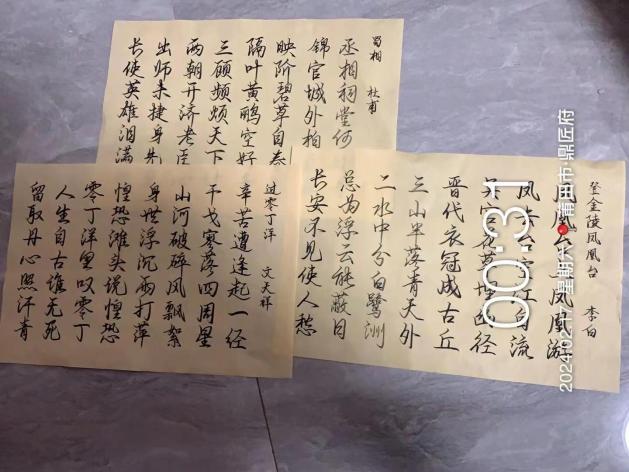 蜀相 杜甫
丞相祠堂何
锦官城外柏
映阶碧草自春
隔叶黄鹂空好
三顾频烦天下
两朝开济老臣
出师未捷身先
长使英雄泪满
登金陵凤凰台 李白
凤凰台上凤凰游
凤去台空江自流
吴宫花草埋幽径
晋代衣冠成古丘
三山半落青天外
二水中分白鹭洲
总为浮云能蔽日
长安不见使人愁
过零丁洋 文天祥
辛苦遭逢起一径
干戈寥落四周星
山河破碎风飘絮
身世浮沉雨打萍
惶恐滩头说惶恐
零丁洋里叹零丁
人生自古谁无死
留取丹心照汗青
00:31
星期六 莆田市·鼎匠府